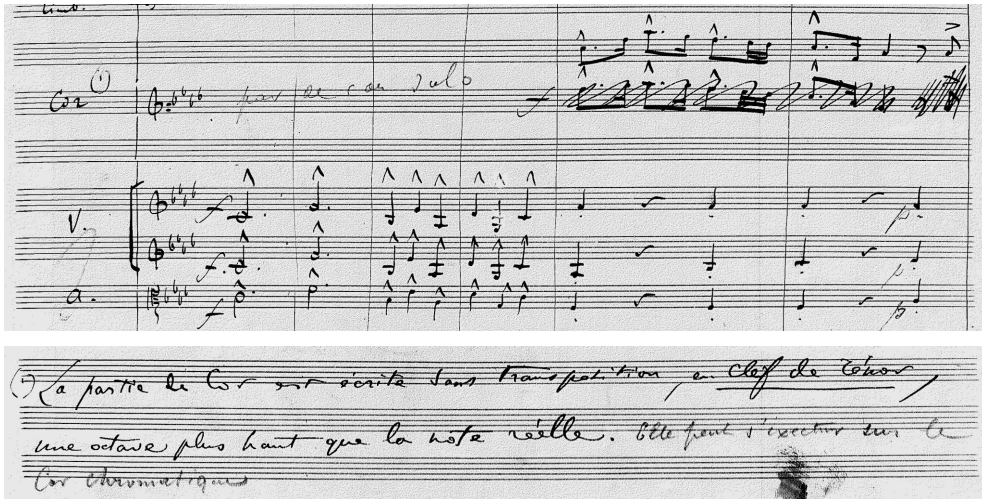 timb.
Cor (1) pas de cor solo
f
V. f p
f. p
a. f p
(1) La partie de Cor est écrite sans transposition, en clef de ténor,
une octave plus haut que la note réelle. Elle peut s'executer sur le
Cor chromatique